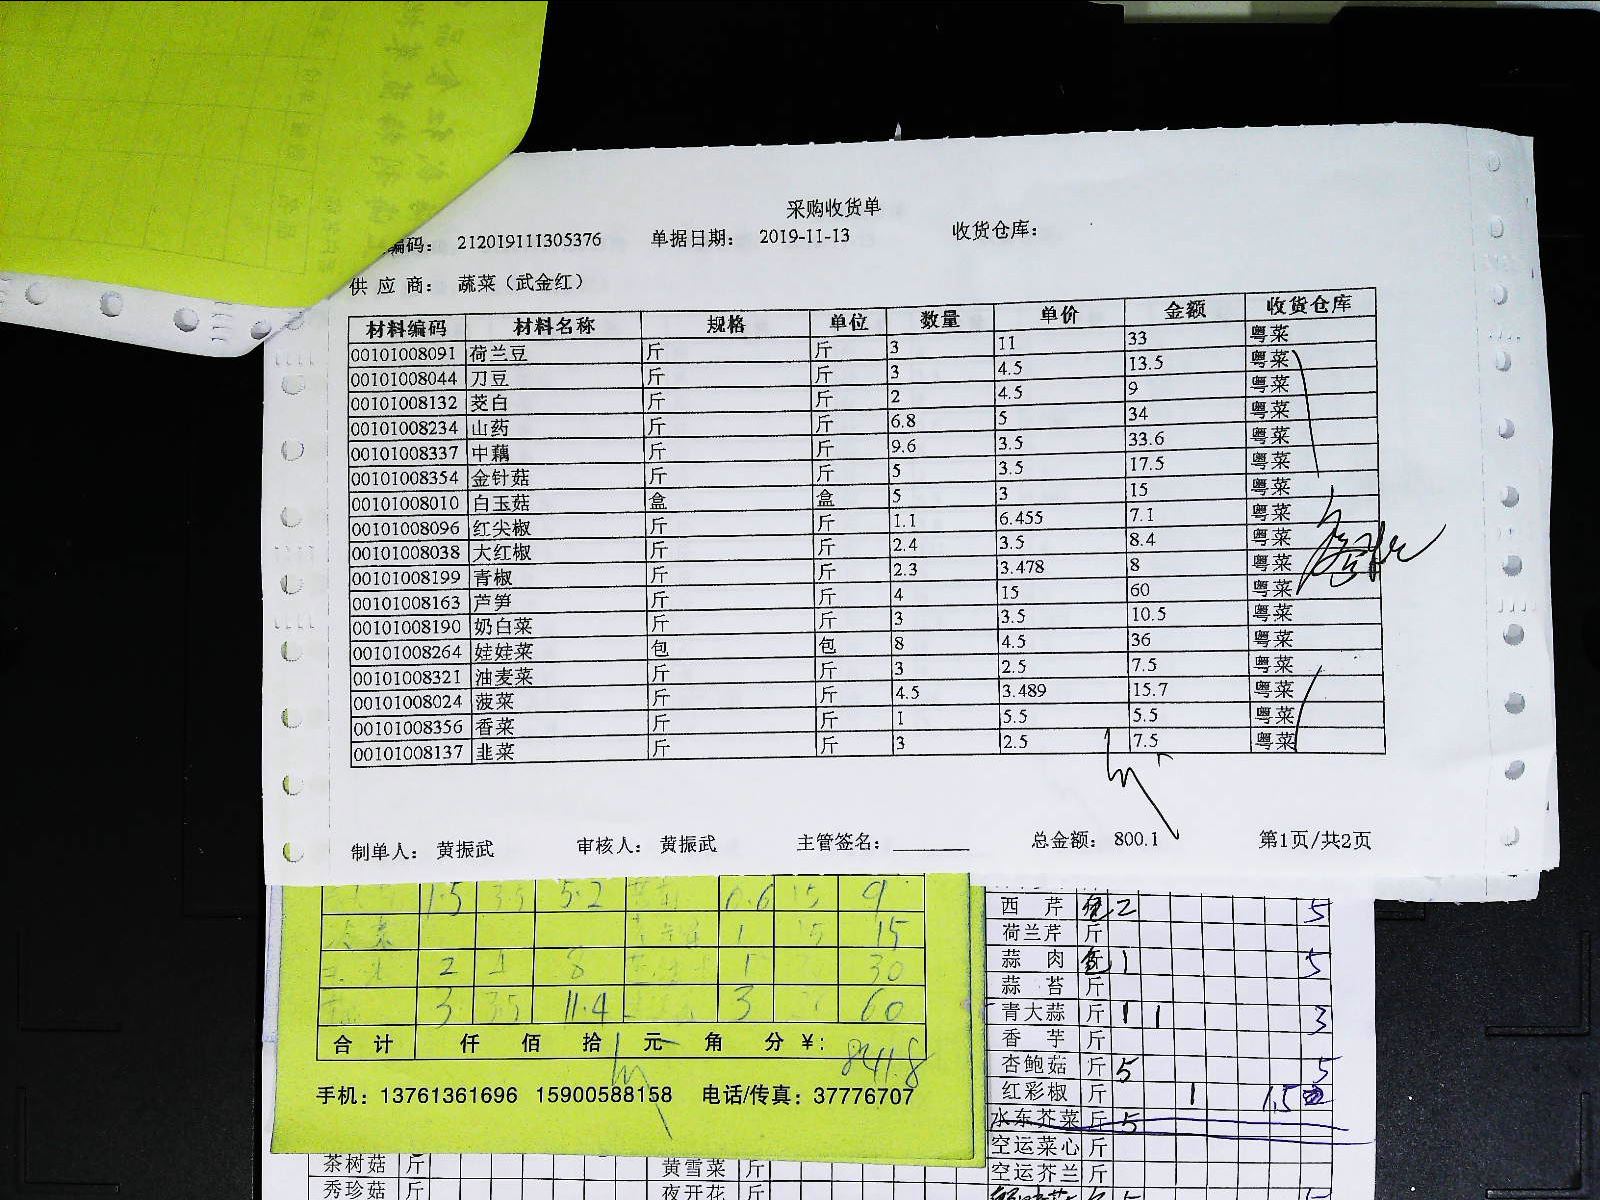 采购收货单
编码： 212019111305376 单据日期： 2019-11-13 收货仓库：
供 应 商： 蔬菜（武金红）
材料编码 材料名称 规格 单位 数量 单价 金额 收货仓库
00101008091 荷兰豆 斤 斤 3 11 33 粤菜
00101008044 刀豆 斤 斤 3 4.5 13.5 粤菜
00101008132 茭白 斤 斤 2 4.5 9 粤菜
00101008234 山药 斤 斤 6.8 5 34 粤菜
00101008337 中藕 斤 斤 9.6 3.5 33.6 粤菜
00101008354 金针菇 斤 斤 5 3.5 17.5 粤菜
00101008010 白玉菇 盒 盒 5 3 15 粤菜
00101008096 红尖椒 斤 斤 1.1 6.455 7.1 粤菜
00101008038 大红椒 斤 斤 2.4 3.5 8.4 粤菜
00101008199 青椒 斤 斤 2.3 3.478 8 粤菜
00101008163 芦笋 斤 斤 4 15 60 粤菜
00101008190 奶白菜 斤 斤 3 3.5 10.5 粤菜
00101008264 娃娃菜 包 包 8 4.5 36 粤菜
00101008321 油麦菜 斤 斤 3 2.5 7.5 粤菜
00101008024 菠菜 斤 斤 4.5 3.489 15.7 粤菜
00101008356 香菜 斤 斤 1 5.5 5.5 粤菜
00101008137 韭菜 斤 斤 3 2.5 7.5 粤菜
制单人： 黄振武 审核人： 黄振武 主管签名： 总金额： 800.1 第1页/共2页
1.5 3.5 5.2 0.6 15 9
1 15 15
2 4 8 1 30
3 3.5 11.4 3 60
合 计 仟 佰 拾 元 角 分 ￥： 841.8
手机：13761361696 15900588158 电话/传真：37776707
西 芹 2 5
荷兰芹 斤
蒜 肉 1 5
蒜 苔 斤
青大蒜 斤 1 1 3
香 芋 斤
杏鲍菇 斤 5 5
红彩椒 斤 1 1.5
水东芥菜 斤 5
空运菜心 斤
空运芥兰 斤
茶树菇 斤 黄雪菜 斤
秀珍菇 斤 夜开花 斤